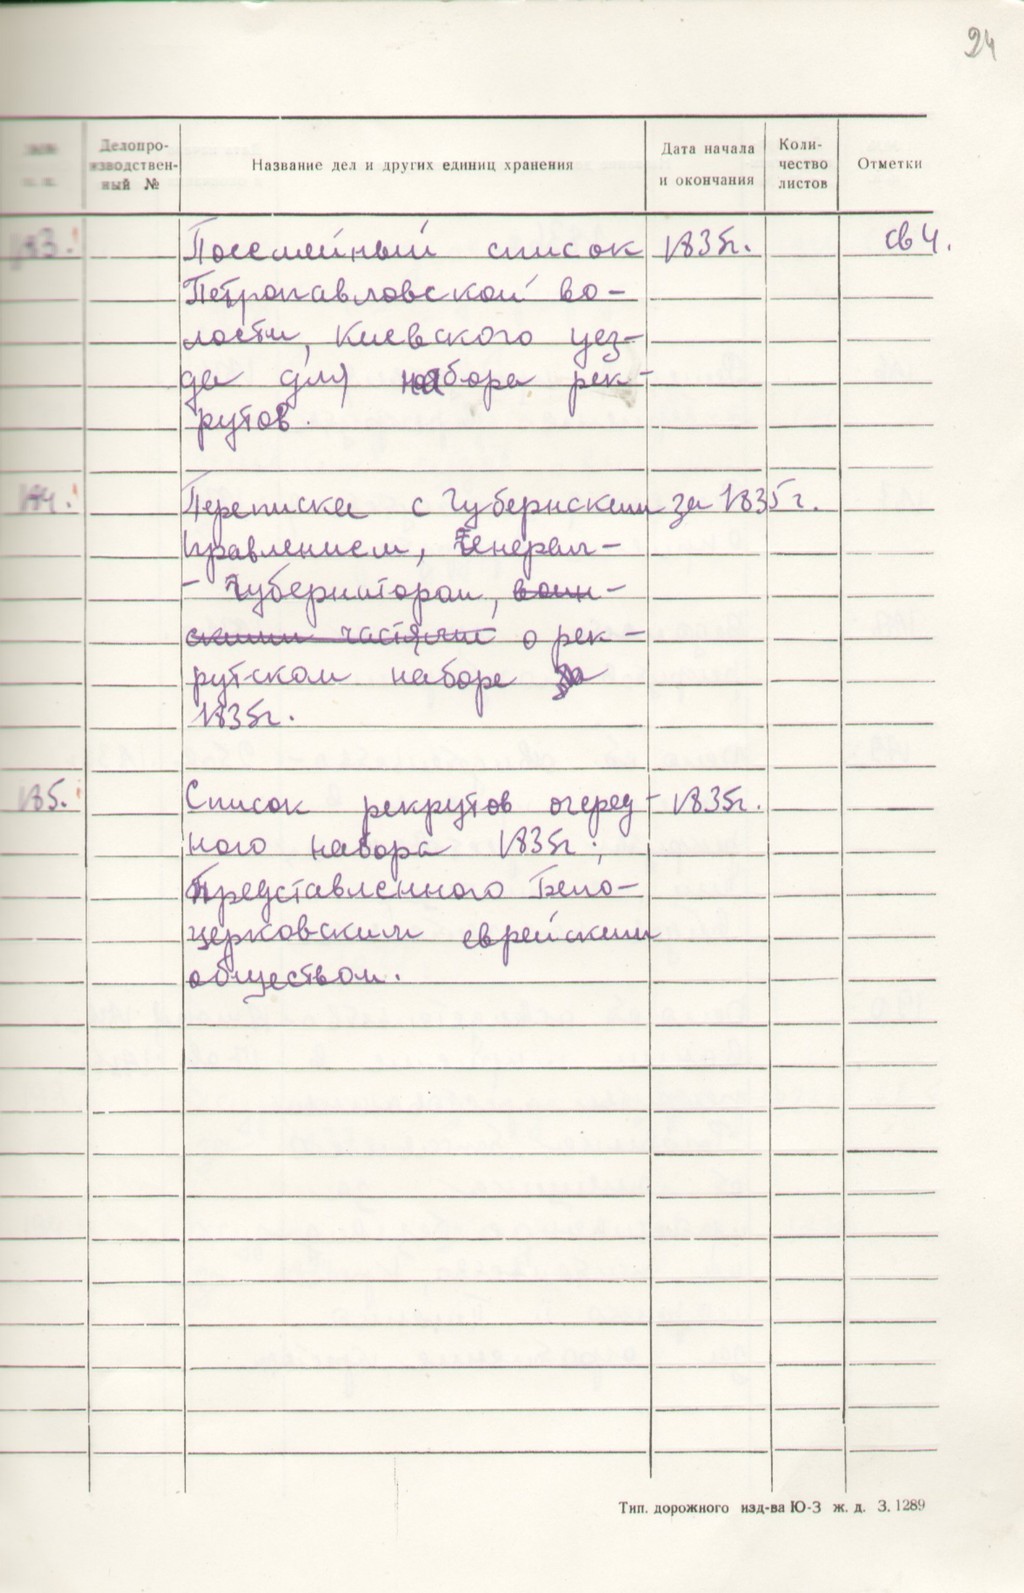 24
Делопро-
изводствен-
ный №
Название дел и других единиц хранения
Дата начала
и окончания
Коли-
чество
листов
Отметки
183. Посемейный список 1835г. св 4.
Петропавловской во-
лости, Киевского уез-
да для набора рек-
рутов.
184. Переписка с Губернским за 1835г.
правлением, Генерал-
- Губернатором, воин-
скими частями о рек-
рутском наборе за
1835г.
185. Список рекрутов очеред- 1835г.
ного набора 1835г.,
Представленного Бело-
церковским еврейским
обществом.
Тип. дорожного изд-ва Ю-З ж. д. З. 1289